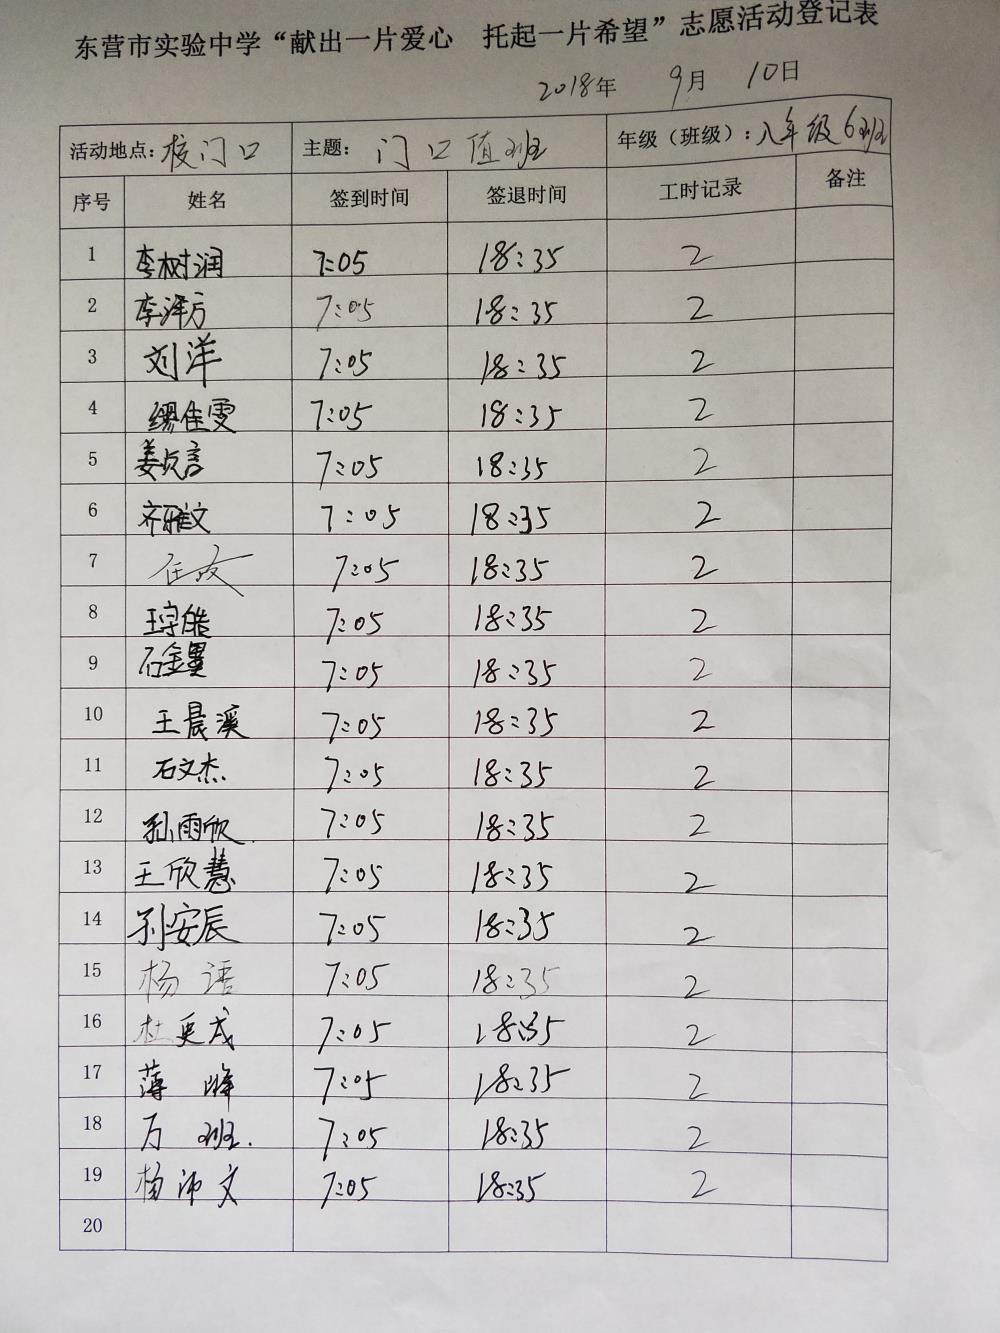 东营市实验中学“献出一片爱心 托起一片希望”志愿活动登记表
2018年 9月 10日
活动地点：校门口 主题： 门口值班 年级（班级）：八年级6班
序号 姓名 签到时间 签退时间 工时记录 备注
1 李树润 7:05 18:35 2
2 李泽方 7:05 18:35 2
3 刘洋 7:05 18:35 2
4 缪佳雯 7:05 18:35 2
5 姜贞言 7:05 18:35 2
6 齐雅文 7:05 18:35 2
7 7:05 18:35 2
8 王宇皓 7:05 18:35 2
9 7:05 18:35 2
10 王晨溪 7:05 18:35 2
11 石文杰 7:05 18:35 2
12 孙雨欣 7:05 18:35 2
13 王欣慧 7:05 18:35 2
14 安辰 7:05 18:35 2
15 杨语 7:05 18:35 2
16 杜 7:05 18:35 2
17 薄峰 7:05 18:35 2
18 万班. 7:05 18:35 2
19 杨沛文 7:05 18:35 2
20